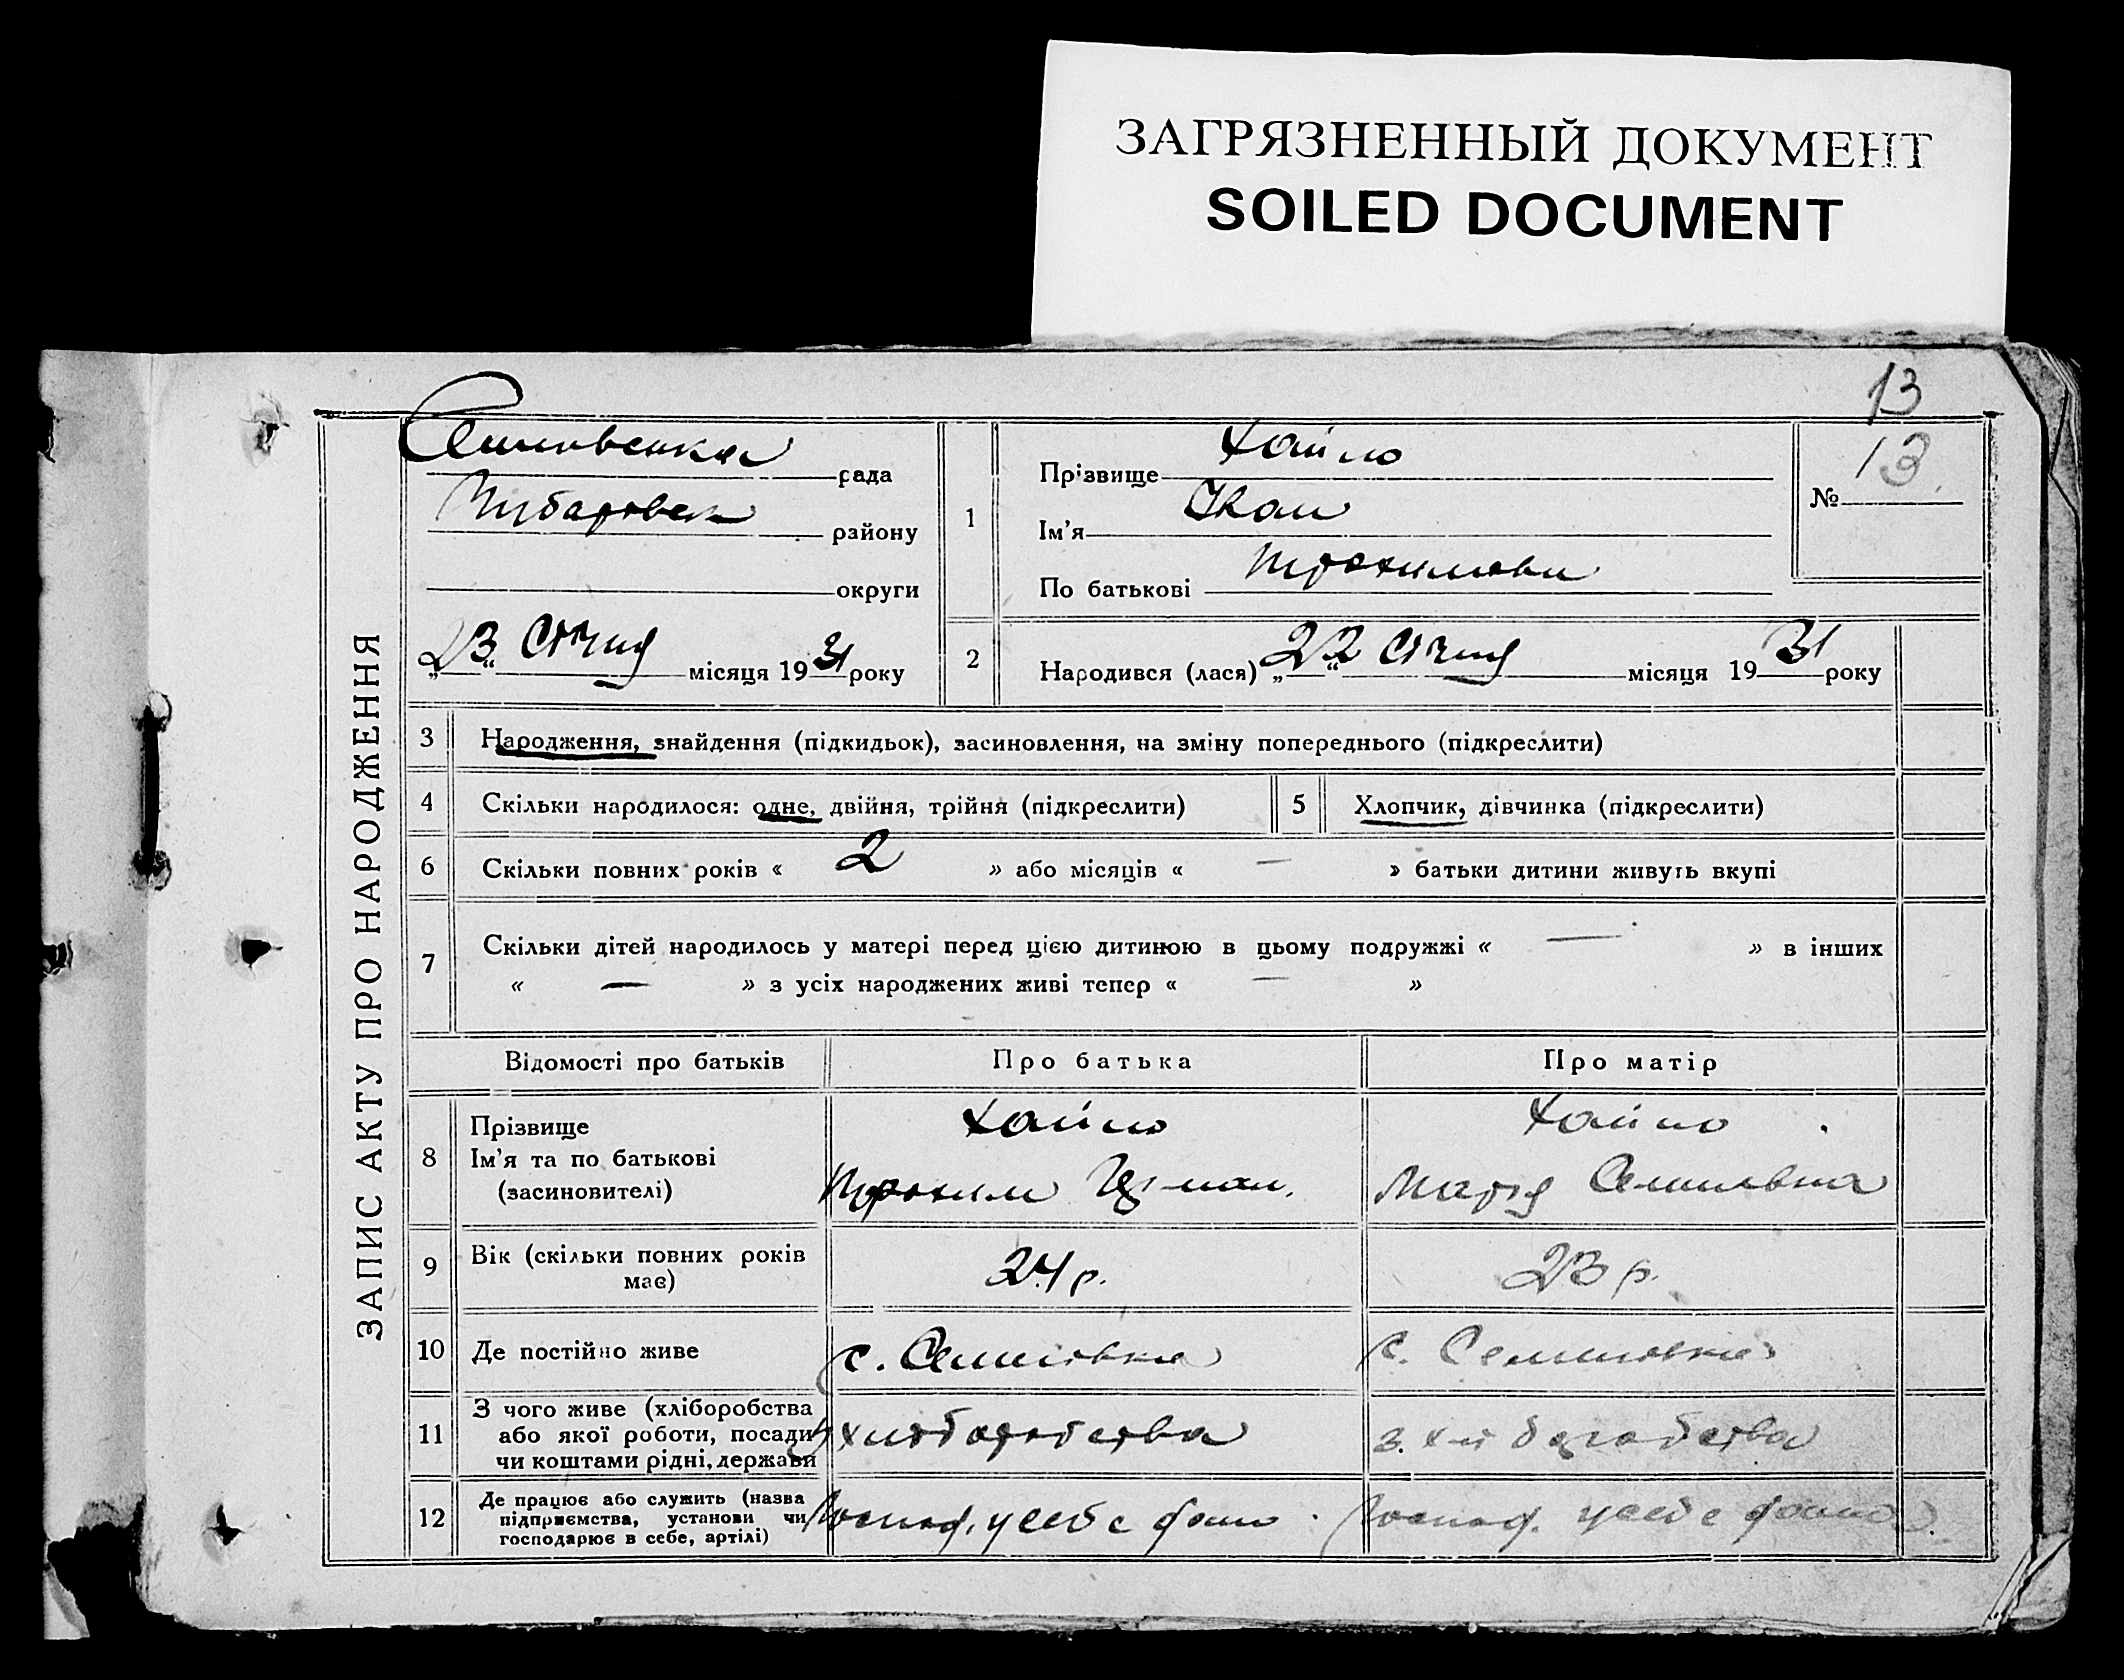 ЗАГРЯЗНЕННЫЙ ДОКУМЕНТ
SOILED DOCUMENT
13
ЗАПИС АКТУ ПРО НАРОДЖЕННЯ
рада
району
округи
„23“ Січня місяця 1931 року
1
Прізвище Хайло
Ім'я Іван
По батькові Трохимови
№ 13.
2
Народився (лася) „22“ Січня місяця 1931 року
3 Народження, знайдення (підкидьок), засиновлення, на зміну попереднього (підкреслити)
4 Скільки народилося: одне, двійня, трійня (підкреслити)
5 Хлопчик, дівчинка (підкреслити)
6 Скільки повних років « 2 » або місяців « — » батьки дитини живуть вкупі
7 Скільки дітей народилось у матері перед цією дитиною в цьому подружжі « — » в інших
« — » з усіх народжених живі тепер « — »
Відомості про батьків Про батька Про матір
8 Прізвище
Ім'я та по батькові
(засиновителі)
Хайло
Трохим
Хайло
Марія Семенівна
9 Вік (скільки повних років
має)
24 р.
23 р.
10 Де постійно живе
с. Семенівка
с. Семенівка
11 З чого живе (хліборобства
або якої роботи, посади
чи коштами рідні, держави
з хліборобства
з. хліборобства
12 Де працює або служить (назва
підприємства, установи чи
господарює в себе, артілі)
Господ. у себе дома
Господ. у себе дома.